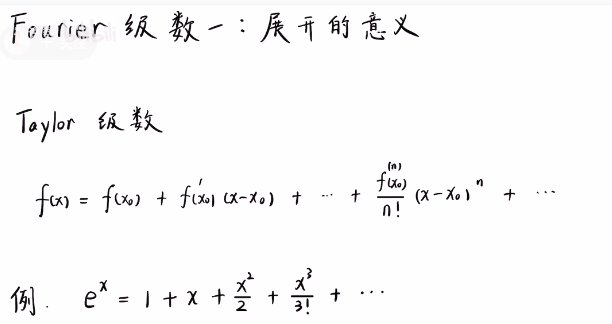 Fourier 级数一：展开的意义
Taylor 级数
f(x) = f(x₀) + f'(x₀)(x-x₀) + ⋯ + f⁽ⁿ⁾(x₀)/n! (x-x₀)ⁿ + ⋯
例. eˣ = 1 + x + x²/2 + x³/3! + ⋯